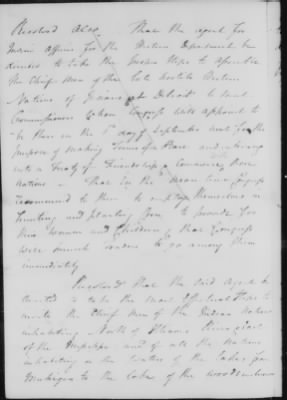 Resolved Also, That the agent for
Indian Affairs for the Western Department be
directed to take the proper steps to assemble
the Chief Men of the late hostile Western
Nations of Indians at Detroit to meet
Commissioners whom Congress will appoint to
be there on the 1st day of September next for the
purpose of making Terms of Peace and entering
into a Treaty of Friendship & Commerce these
nations — That in the mean time Congress
recommend to them to employ themselves in
hunting and planting Corn to provide for
their women and Children & that Congress
will send traders to go among them
immediately

Resolved That the said Agent be
directed to take the most effectual steps to
invite the Chief Men of the Indian Nations
inhabiting North of Ohio East
of the Mississippi and of all the Nations
inhabiting on the waters of the Lakes from
Michigan to the lake of the woods inclusive